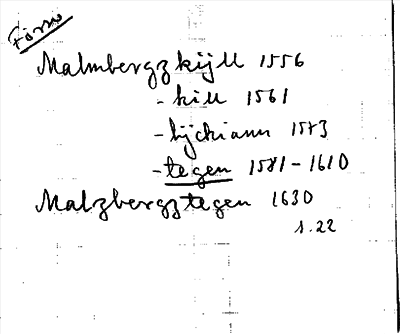 Form
Malmbergz kijll 1556
- kill 1561
- lijckiann 1573
- tegen 1581-1610
Malzbergztegen 1630
s. 22